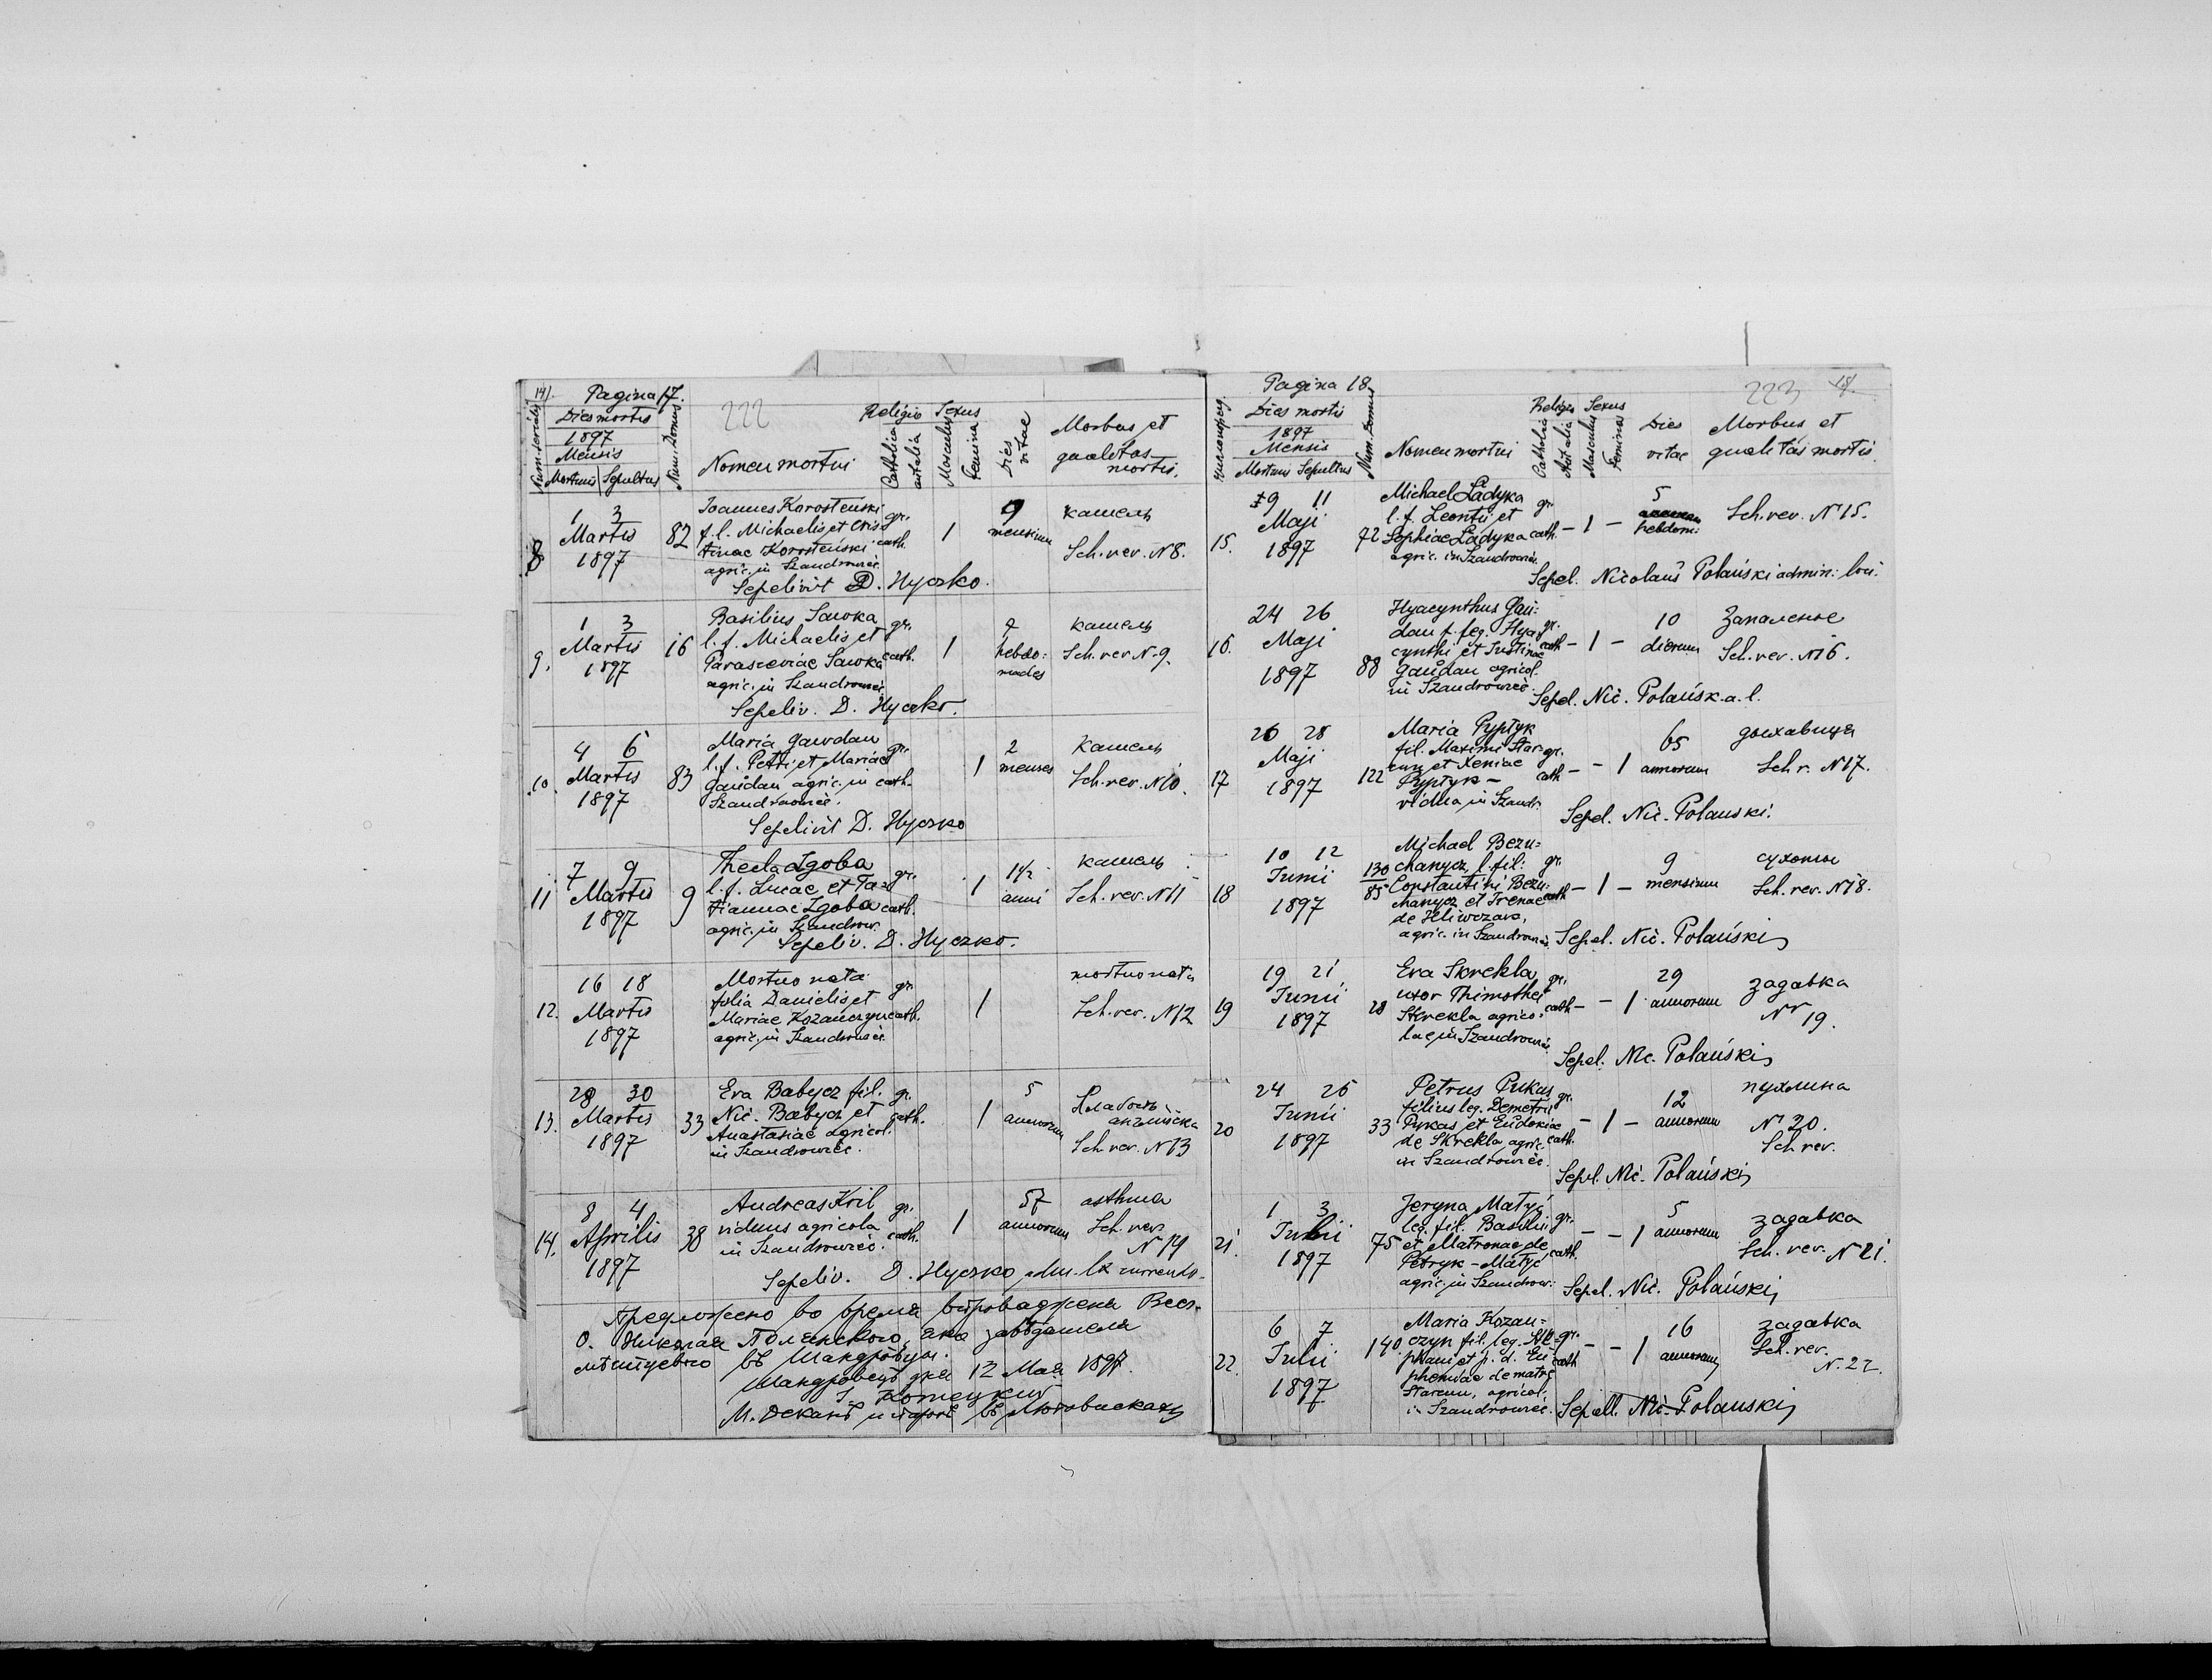 14).
Pagina 17.
222
Num. serialis
Dies mortis
1897
Mensis
Mortuus Sepultus
Num. Domus
Nomen mortui
Religio
Catholica
aut alia
Sexus
Masculus
Femina
Dies
vitae
Morbus et
qualitas
mortis.
8
1 3
Martis
1897
82
Joannes Korosteński
f. l. Michaelis et Chris
tinae Korosteński
agric. in Szandrowiec
gr.
cath.
1
9
mensium
кашель
Sch. rev. N 8.
Sepelivit D. Hyczko.
9.
1 3
Martis
1897
16
Basilius Sawka
l. f. Michaelis et
Parasceviae Sawka
agric. in Szandrowiec
gr.
cath.
1
7
hebdo:
mades
кашель
Sch. rev. N. 9.
Sepeliv. D. Hyczko.
10.
4 6
Martis
1897
83
Maria Gawdan
l. f. Petri et Mariae
Gaudan agric. in
Szandrowiec.
gr.
cath.
1
2
menses
кашель
Sch. rev. N 10.
Sepelivit D. Hyczko
11
7 9
Martis
1897
9
Thecla Zgoba
l. f. Lucae et Ta=
tiannae Zgoba
agric. in Szandrow.
gr.
cath.
1
1 1/2
anni
кашель
Sch. rev. N 11
Sepeliv. D. Hyczko.
12.
16 18
Martis
1897
Mortuo nata
filia Danielis et
Mariae Kozanczyn
agric. in Szandrowiec.
gr.
cath.
1
mortuo nata
Sch. rev. N 12
13.
28 30
Martis
1897
33
Eva Babycz fil.
Nic. Babycz et
Anastasiae agricol.
in Szandrowiec.
gr.
cath.
1
5
annorum
Слабость
англійска
Sch. rev. N 13
14.
8 4
Aprilis
1897
38
Andreas Kril
viduus agricola
in Szandrowiec.
gr.
cath.
1
57
annorum
asthma
Sch. rev.
N 14
Sepeliv. D. Hyczko adm. ex currendo
Предложено во время впроваджена Всеч.
О. Николая Полянского, яко завѣдателя
мѣстцевого въ Шандрôвци.
Шандрôвець дня 12 Мая 1897.
М. Деканъ и парохъ въ
Pagina 18
223
Dies mortis
1897
Mensis
Mortuus Sepultus
Num. Domus
Nomen mortui
Religio
Catholica
Aut alia
Sexus
Masculus
Feminas
Dies
vitae
Morbus et
qualitas mortis.
15.
9 11
Maji
1897
72
Michael Ladyka
l. f. Leontii et
Sophiae Ladyka
agric. in Szandrowiec.
gr.
cath. – 1 –
5
hebdom:
Sch. rev. N 15.
Sepel. Nicolaus Polański admin: loci.
16.
24 26
Maji
1897
88
Hyacynthus Gau:
dan f. leg. Hya
cynthi et Justinae
Gaudan agricol.
in Szandrowiec.
gr.
cath – 1 –
10
dierum
Запаленье
Sch. rev. N 16.
Sepel. Nic. Polańsk. a. l.
17
26 28
Maji
1897
122
Maria Pyptyk
fil. Maximi Star
cun et Xeniae
Pyptyk –
vidua in Szandr.
gr.
cath – – 1
65
annorum
дыхавиця
Sch. r. N 17.
Sepel. Nic. Polanski.
18
10 12
Junii
1897
130
85
Michael Bezu=
chanycz, l. fil:
Constantini Bezu:
chanycz et Irenae
de Hliwczars,
agric. in Szandrowiec.
gr.
cath – 1 –
9
mensium
сухоты
Sch. rev. N 18.
Sepel. Nic. Polański
19
19 21
Junii
1897
28
Eva Skrekla
uxor Thimothei
Skrekla agrico:
lae in Szandrowiec.
gr.
cath – – 1
29
annorum
загавка
Nr
19.
Sepel. Nic. Polański
20
24 26
Junii
1897
33
Petrus Pukas
filius leg. Demetrii
Pykas et Eudokiae
de Skrekla agric.
in Szandrowiec.
gr.
cath. – 1 –
12
annorum
пухлина
N 20.
Sch rev.
Sepel. Nic. Polański
21.
1 3
Julii
1897
75
Jeryna Matyć
leg. fil. Basilii
et Matronae de
Petryk – Matyć
agric. in Szandrow:
gr.
cath. – – 1
5
annorum
загавка
Sch. rev. N 21.
Sepel. Nic. Polański
22.
6 7
Julii
1897
140
Maria Kozan=
czyn fil. leg. Ste=
phani et p. d. Eu
phemiae de matre
Starcun, agricol.
in Szandrowiec.
gr.
cath – – 1
16
annorum
загавка
Sch. rev.
N. 22.
Sepell. Nic. Polanski